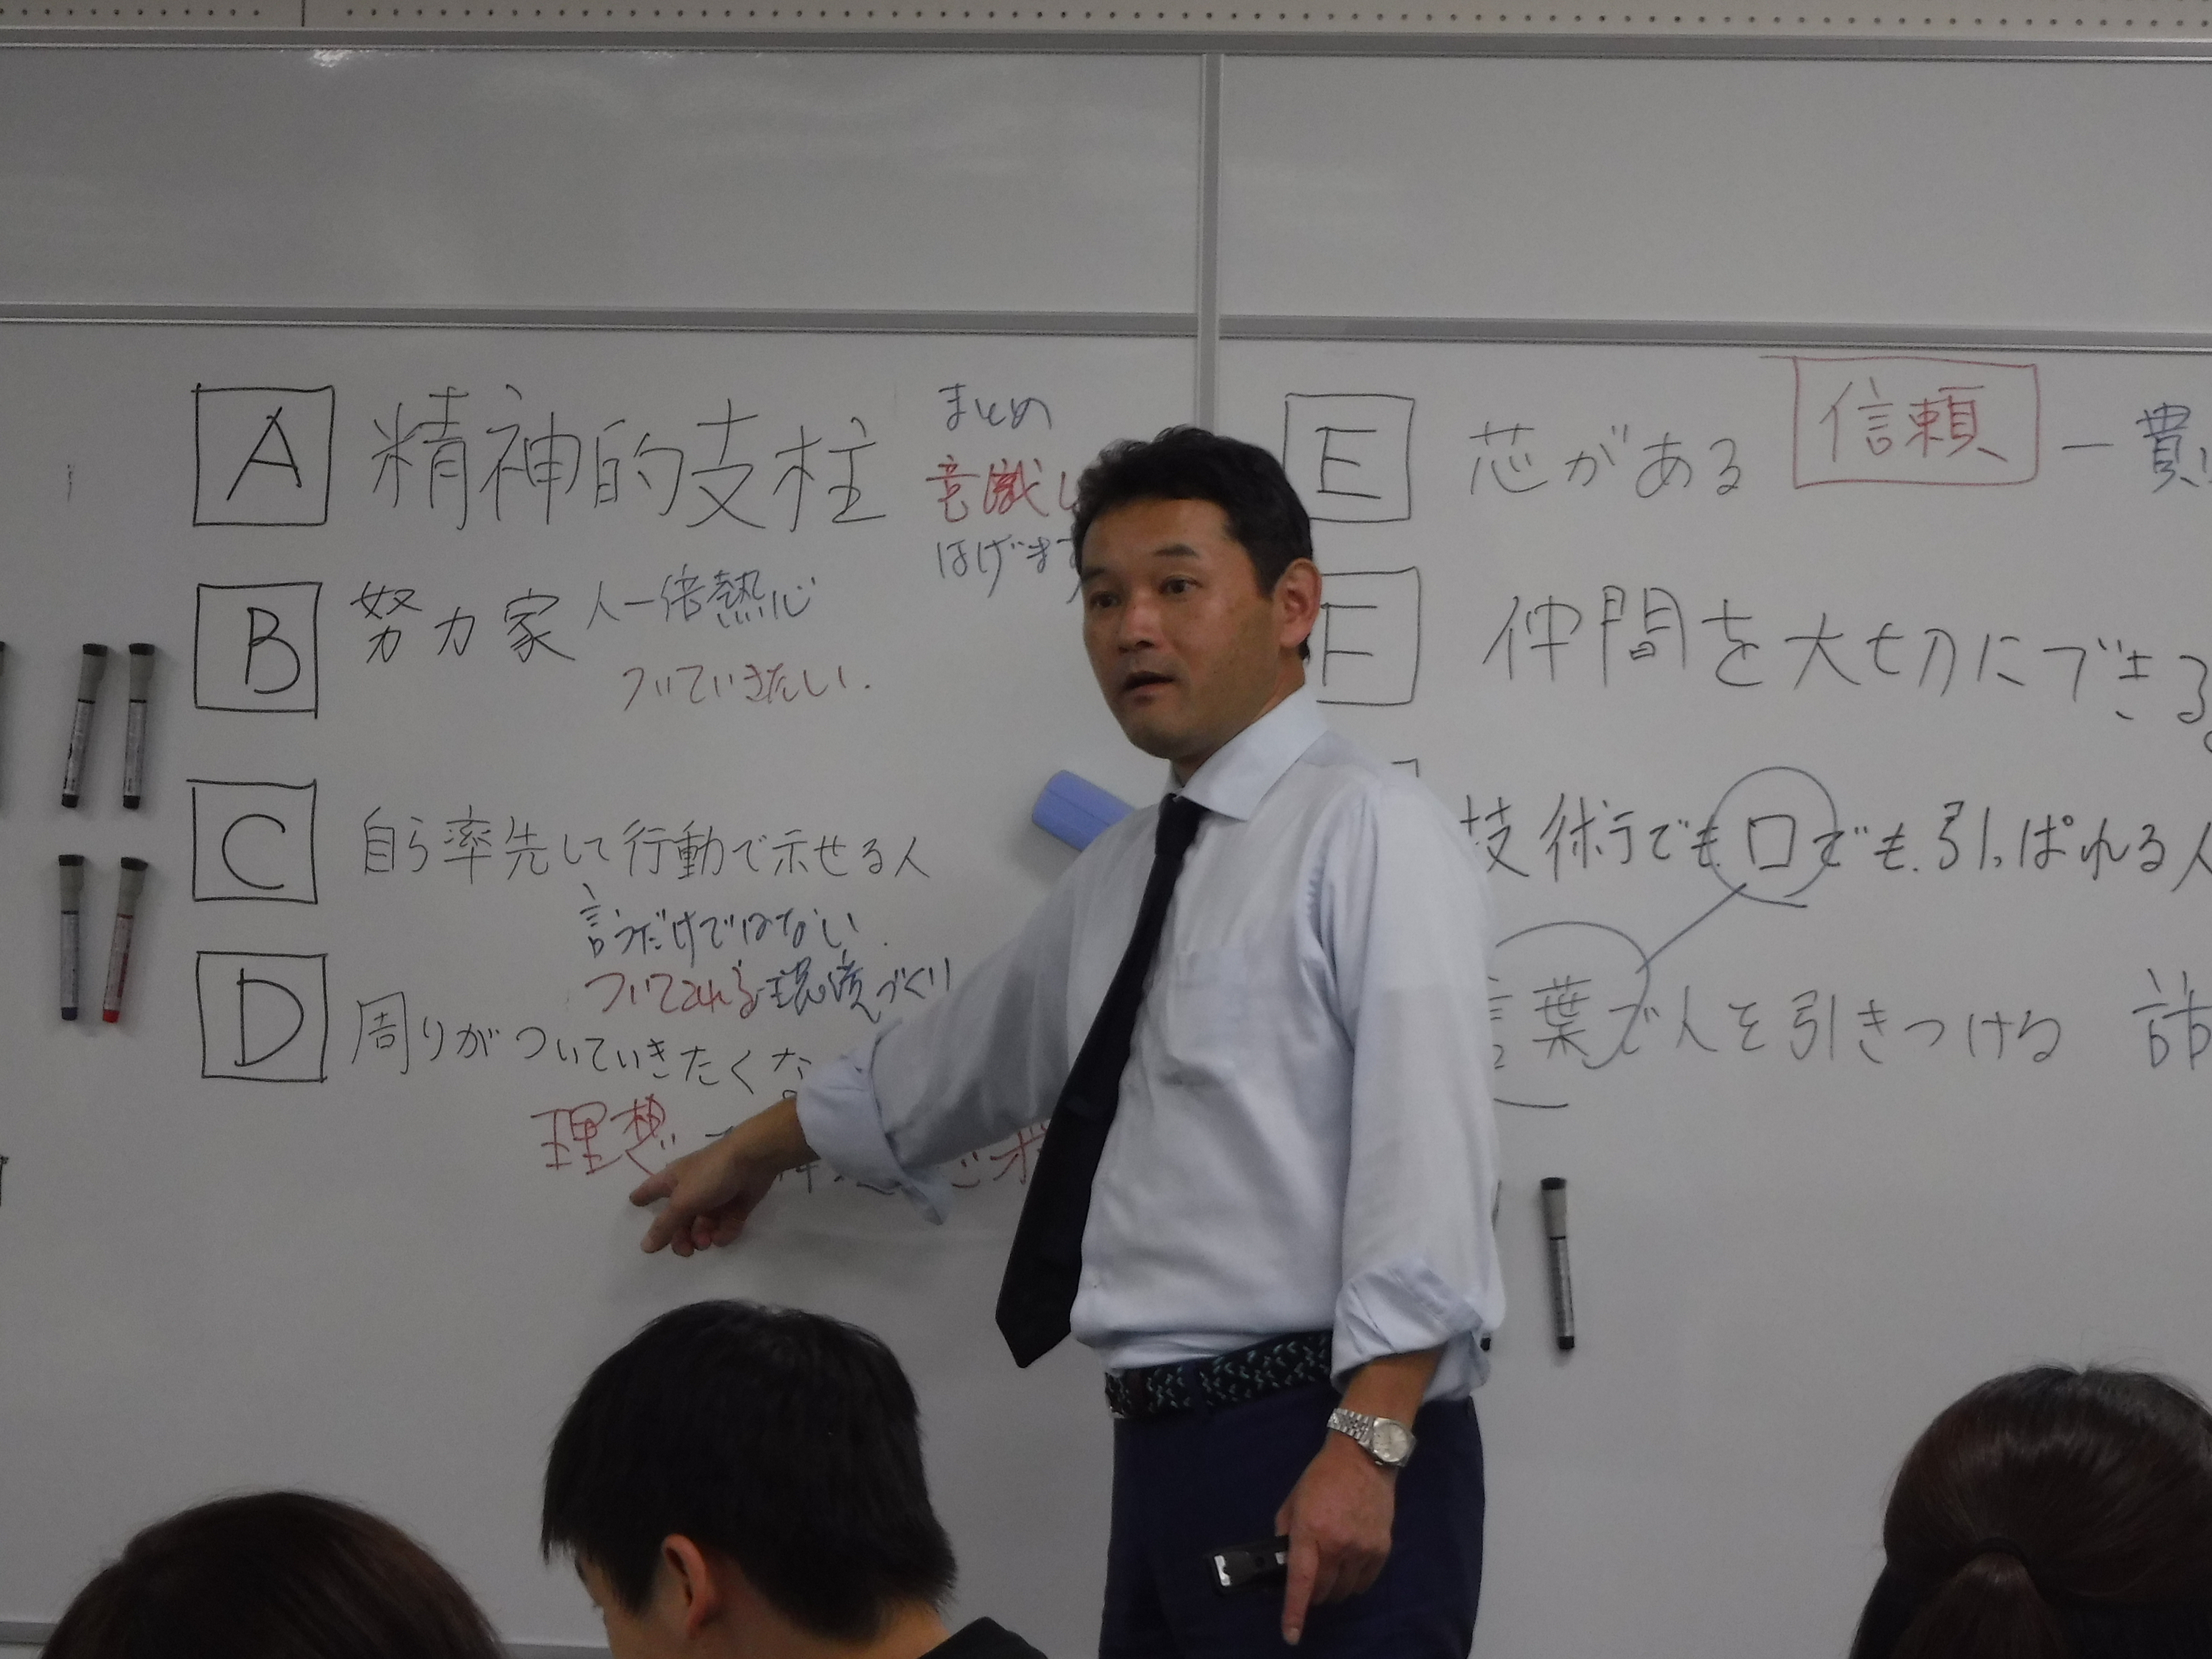 A 精神的支柱
まとめ
意識し
はげます
B 努力家 人一倍熱心
ついていきたい.
C 自ら率先して行動で示せる人
言うだけではない.
ついてこれる環境づくり
D 周りがついていきたくな
理想
E 芯がある 信頼 一貫
F 仲間を大切にできる。
技術でも口でも引っぱれる人
言葉で人を引きつける